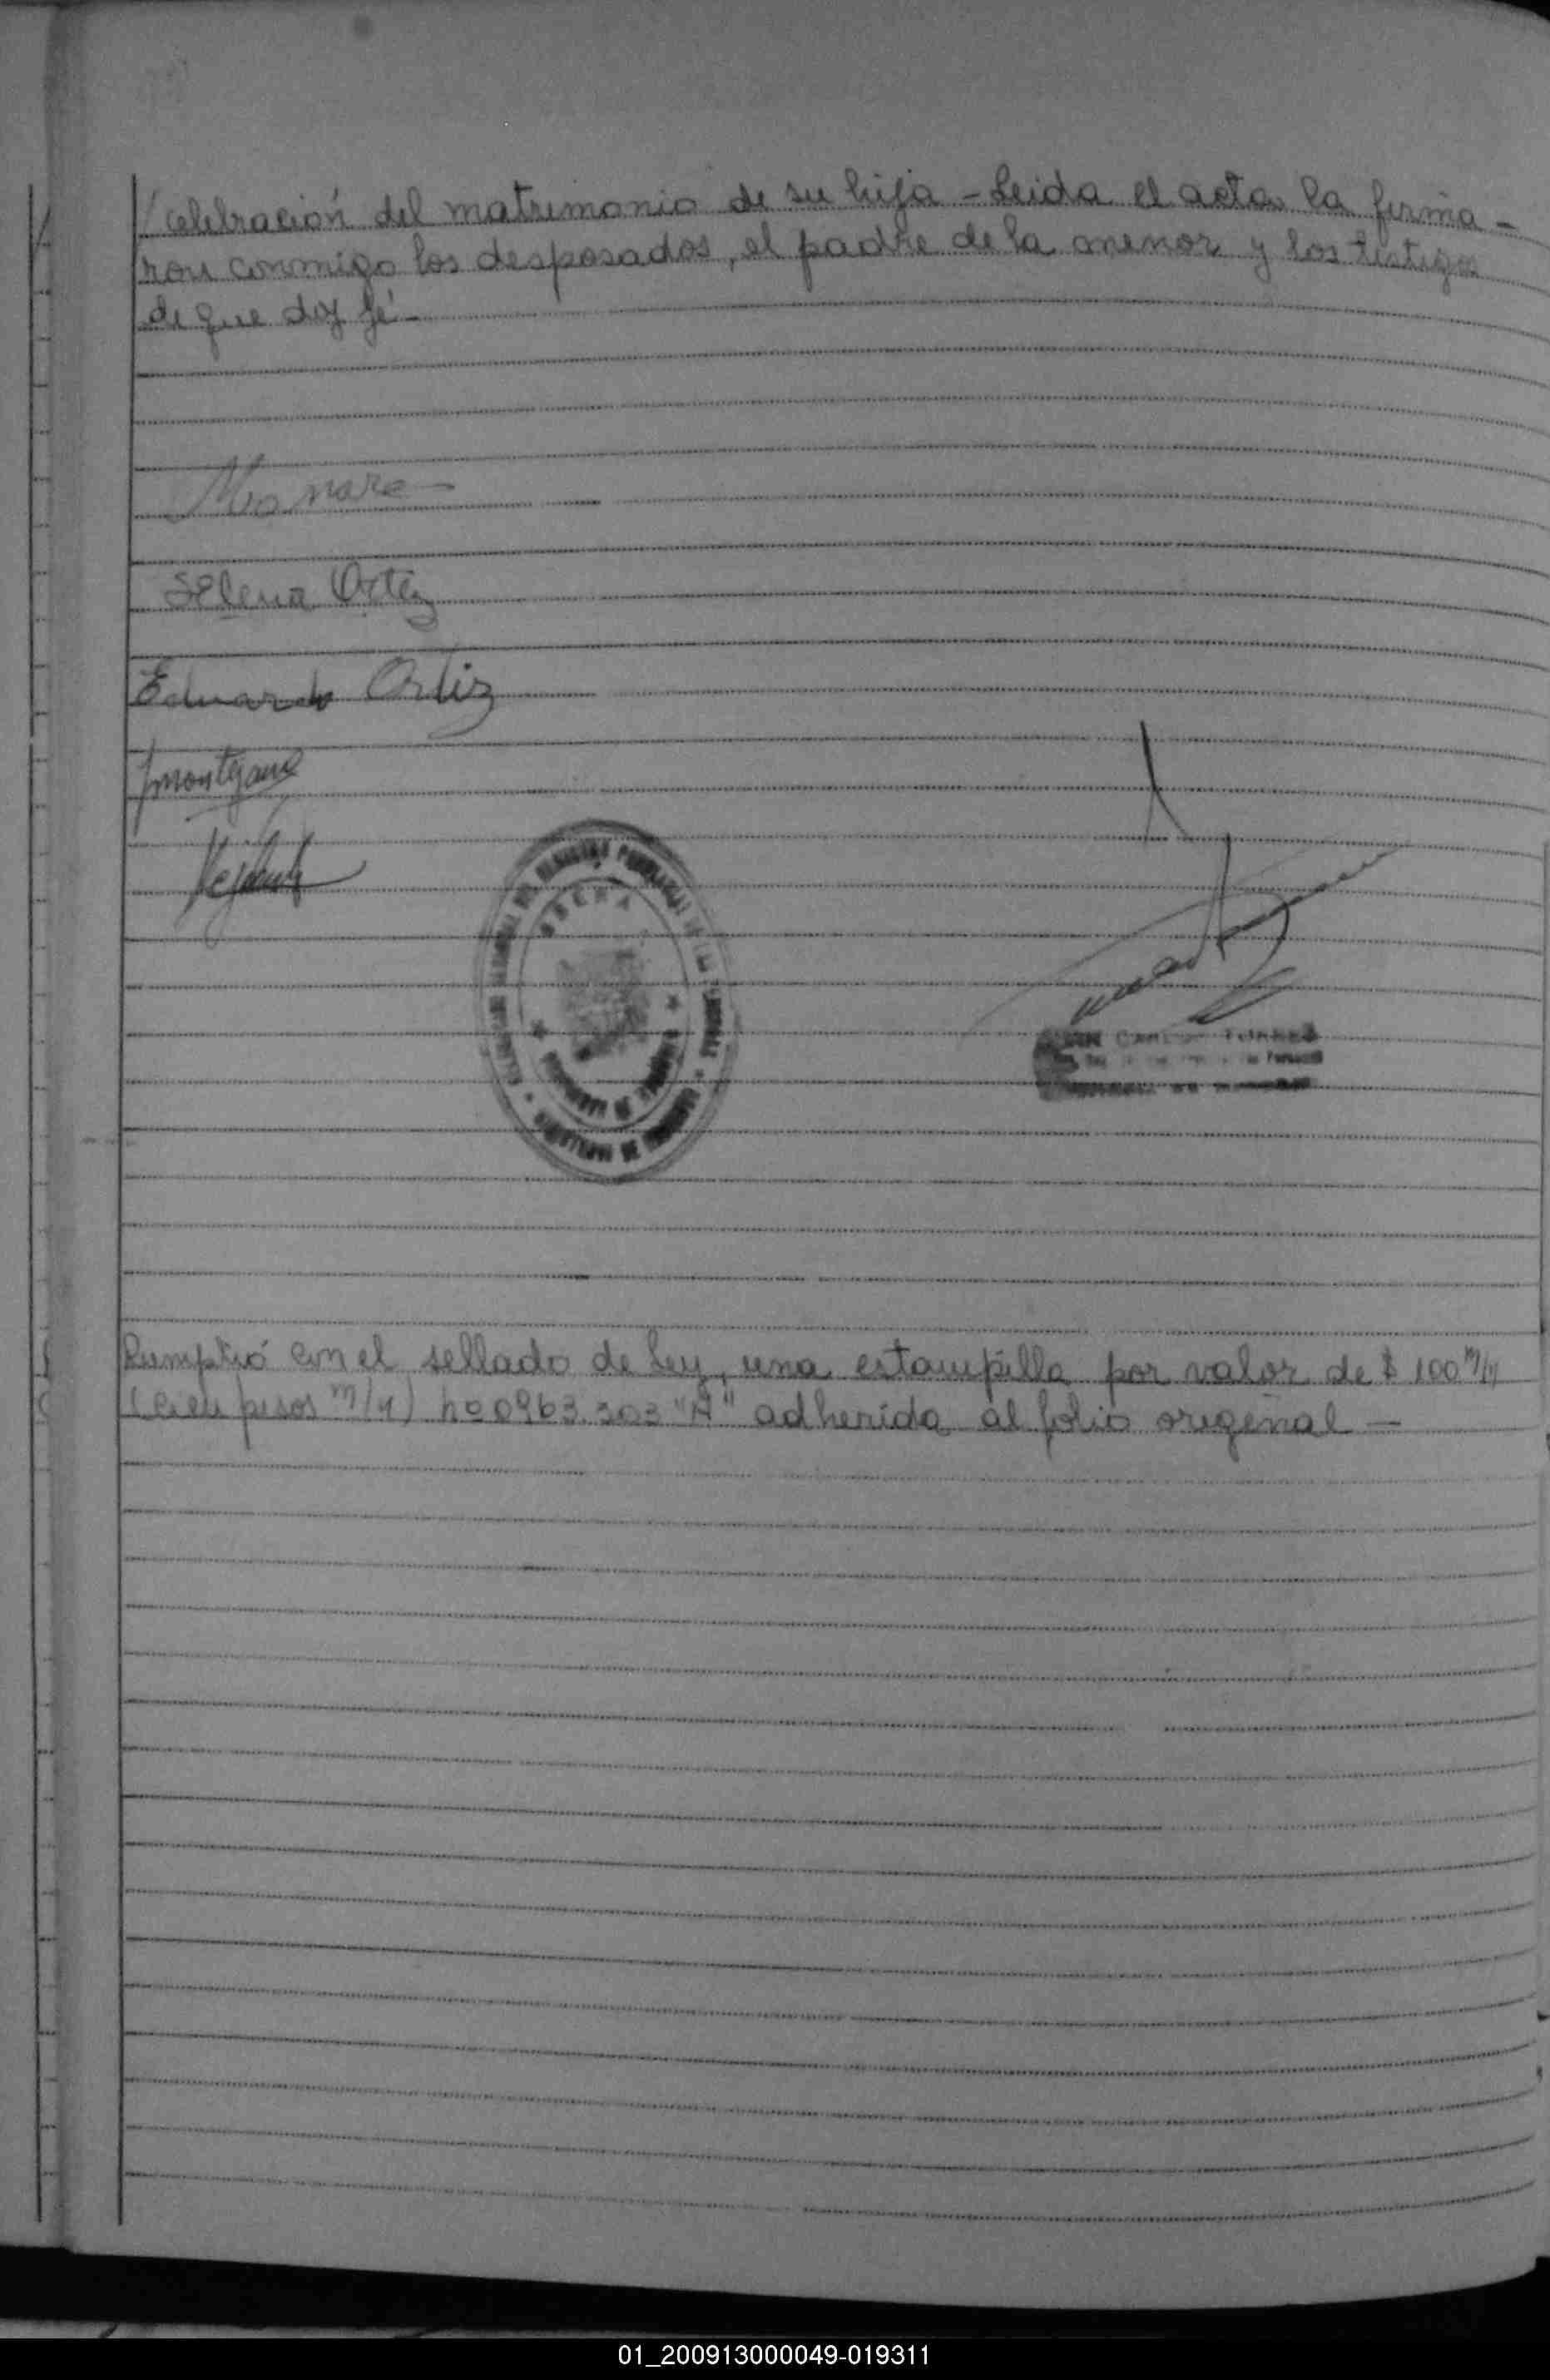 /celebración del matrimonio de su hija - Leida el acta la firma-
ron conmigo los desposados, el padre de la menor y los testigos
de que doy fé -
Selena Ortiz
Eduardo Ortiz
OBERA
Cumplió con el sellado de Ley, una estampilla por valor de $ 100 m/n
(cien pesos m/n) nº 0963.303 "A" adherida al folio original —
01_200913000049-019311